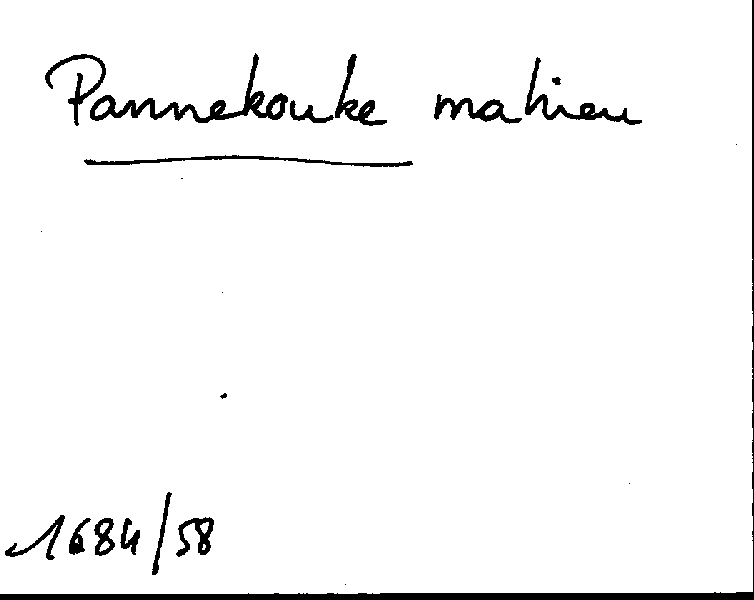 Pannekouke mahieu
1684/58